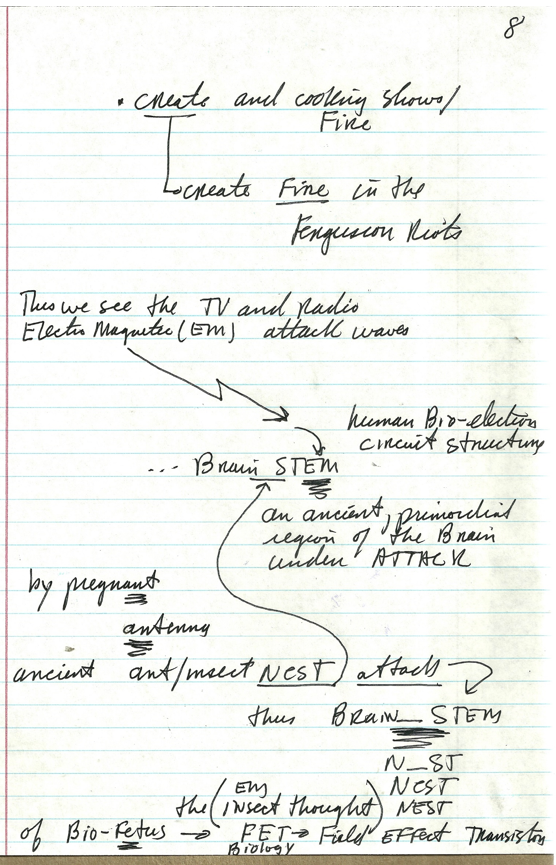 8
• create and cooking shows/
Fire
create Fire in the
Ferguson Riots
Thus we see the TV and Radio
Electro Magnetic (EM) attack waves
human Bio-electron
circuit structure
... Brain STEM
an ancient, primordial
region of the Brain
under ATTACK
by pregnant
antenna
ancient ant/insect NEST attack
thus Brain_STEM
N_ST
NEST
the (EM insect thought) NEST
of Bio-Fetus → FET → Field EFFECT Transistor
Biology